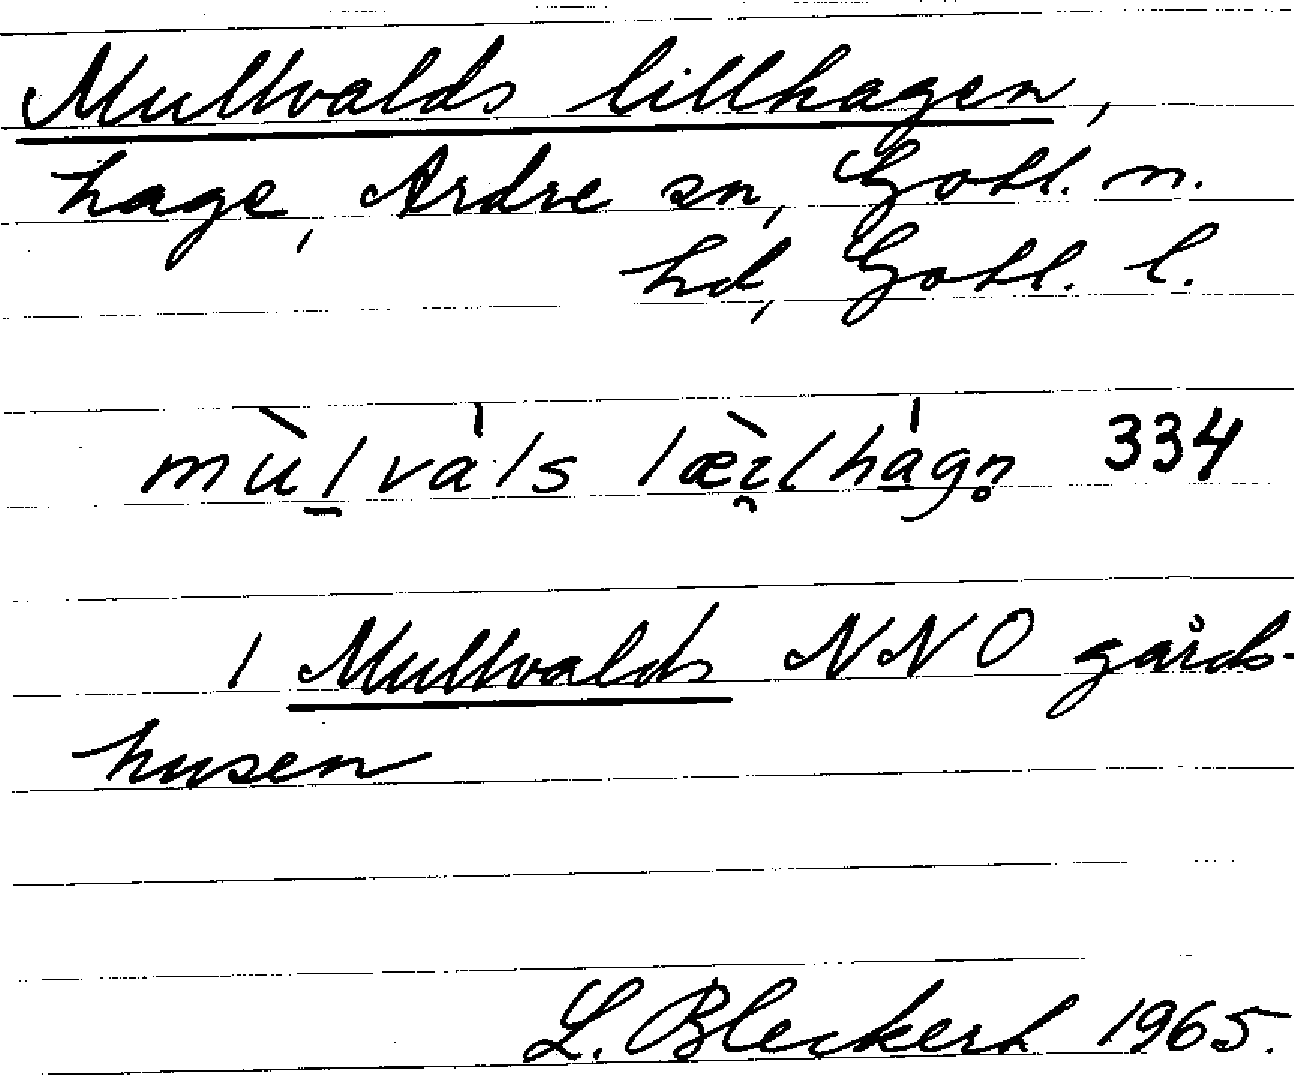 Mullvalds lillhagen,
hage, Ardre sn, Gotl. n.
hd, Gotl. l.
mùl̠vàls læ̀ɪ̯lhág̣n̥ 334
I Mullvalds NNO gårds-
husen
L. Bleckert 1965.